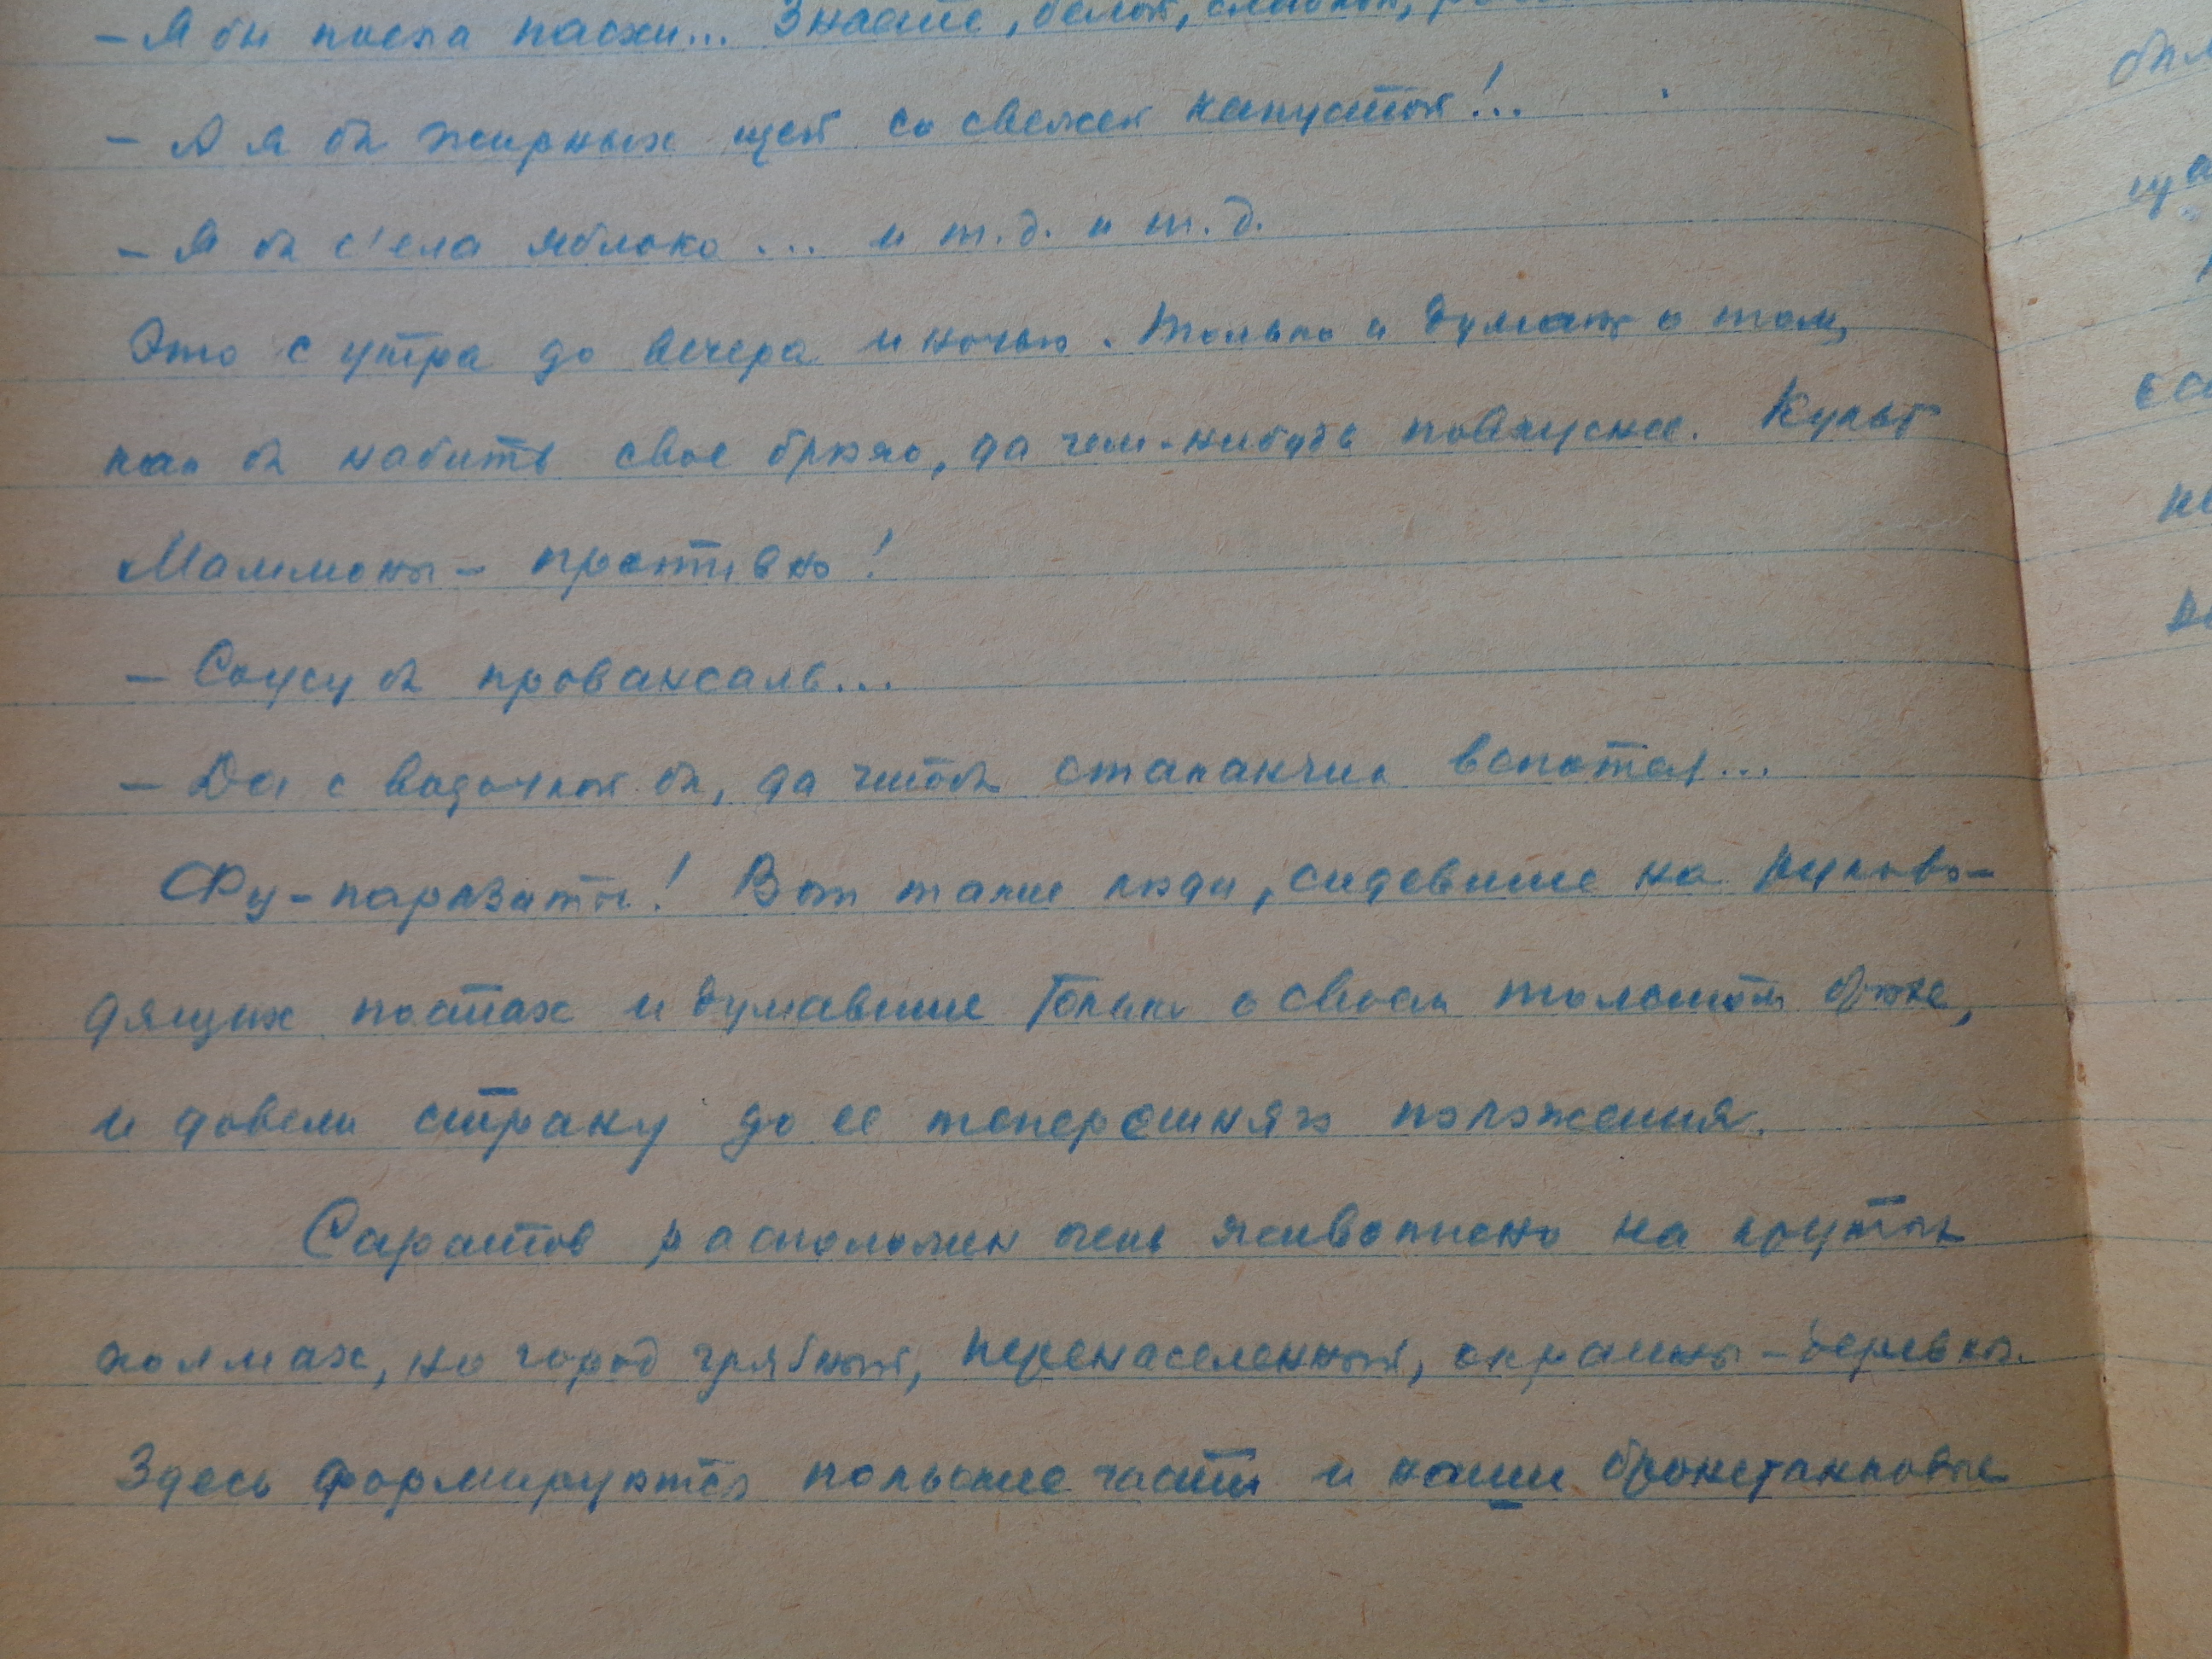 - Я бы поела пасхи... Знаете, белой, сладкой,
- А я бы жирных щей со свежей капустой!..
- Я бы с'ела яблоко... и т.д. и т.д.
Это с утра до вечера и ночью. Только и думают о том,
как бы набить свое брюхо, да чем-нибудь повкуснее. Культ
Маммоны - противно!
- Соусу бы провансаль...
- Да с водочкой бы, да чтобы стаканчик вспотел...
Фу - паразиты! Вот такие люди, сидевшие на руково-
дящих постах и думавшие только о своем толстом брюхе,
и довели страну до ее теперешняго положения.
Саратов расположен очень живописно на крутых
холмах, но город грязный, перенаселенный, окраины - деревни.
Здесь формируются польские части и наши бронетанковые